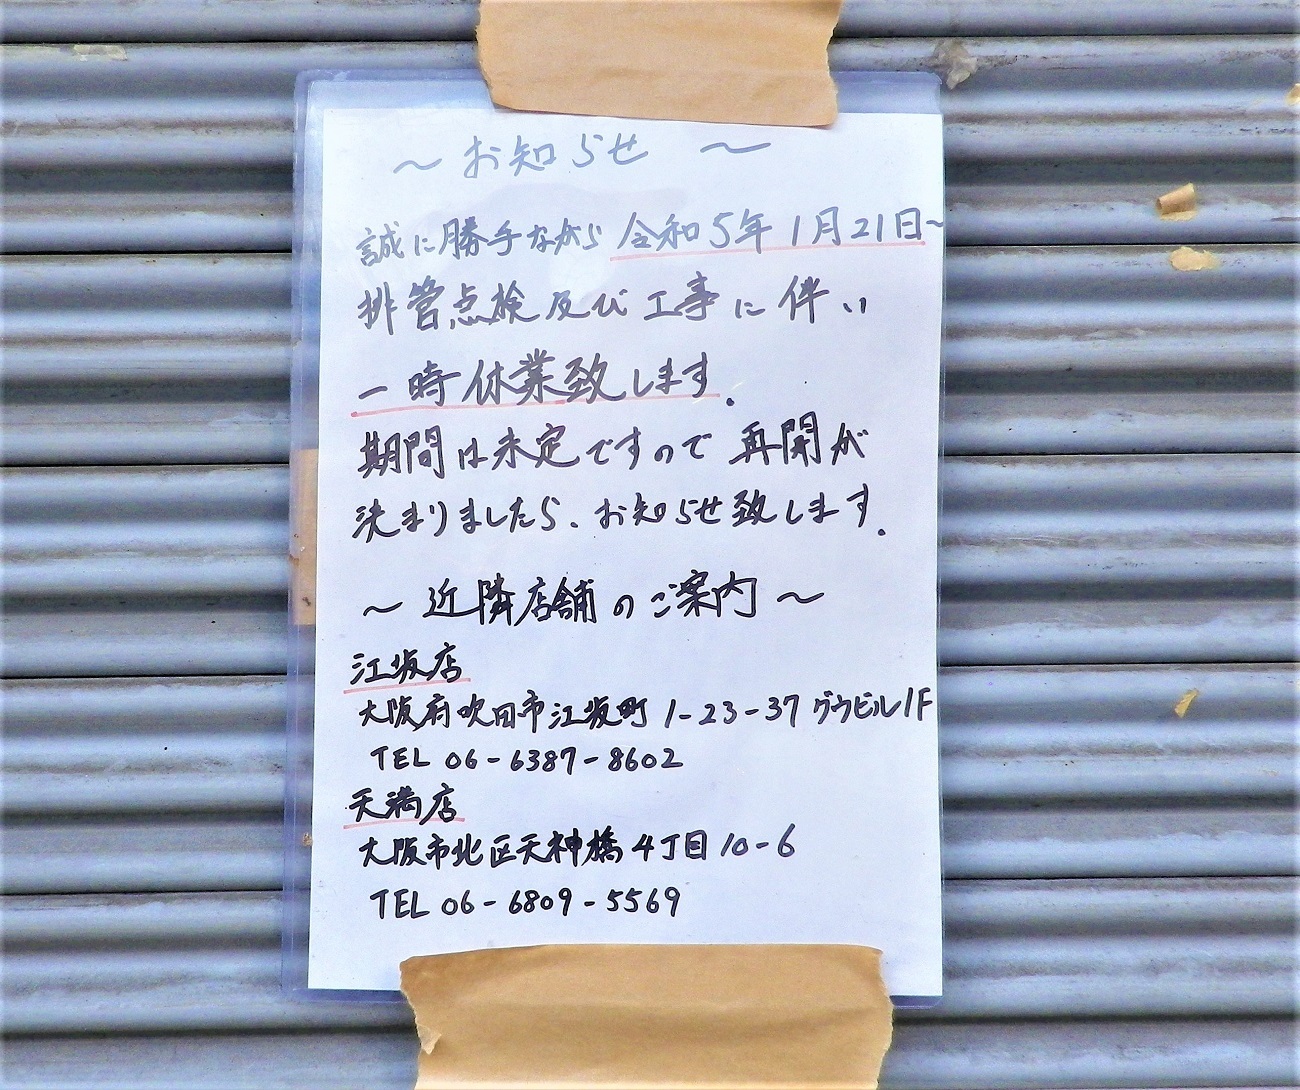 ～ お知らせ ～
誠に勝手ながら 令和5年1月21日～
排管点検及び工事に伴い
一時休業致します.
期間は未定ですので再開が
決まりましたら、お知らせ致します.
～ 近隣店舗のご案内 ～
江坂店
大阪府吹田市江坂町 1-23-37 グウビル1F
TEL 06-6387-8602
天満店
大阪市北区天神橋4丁目10-6
TEL 06-6809-5569